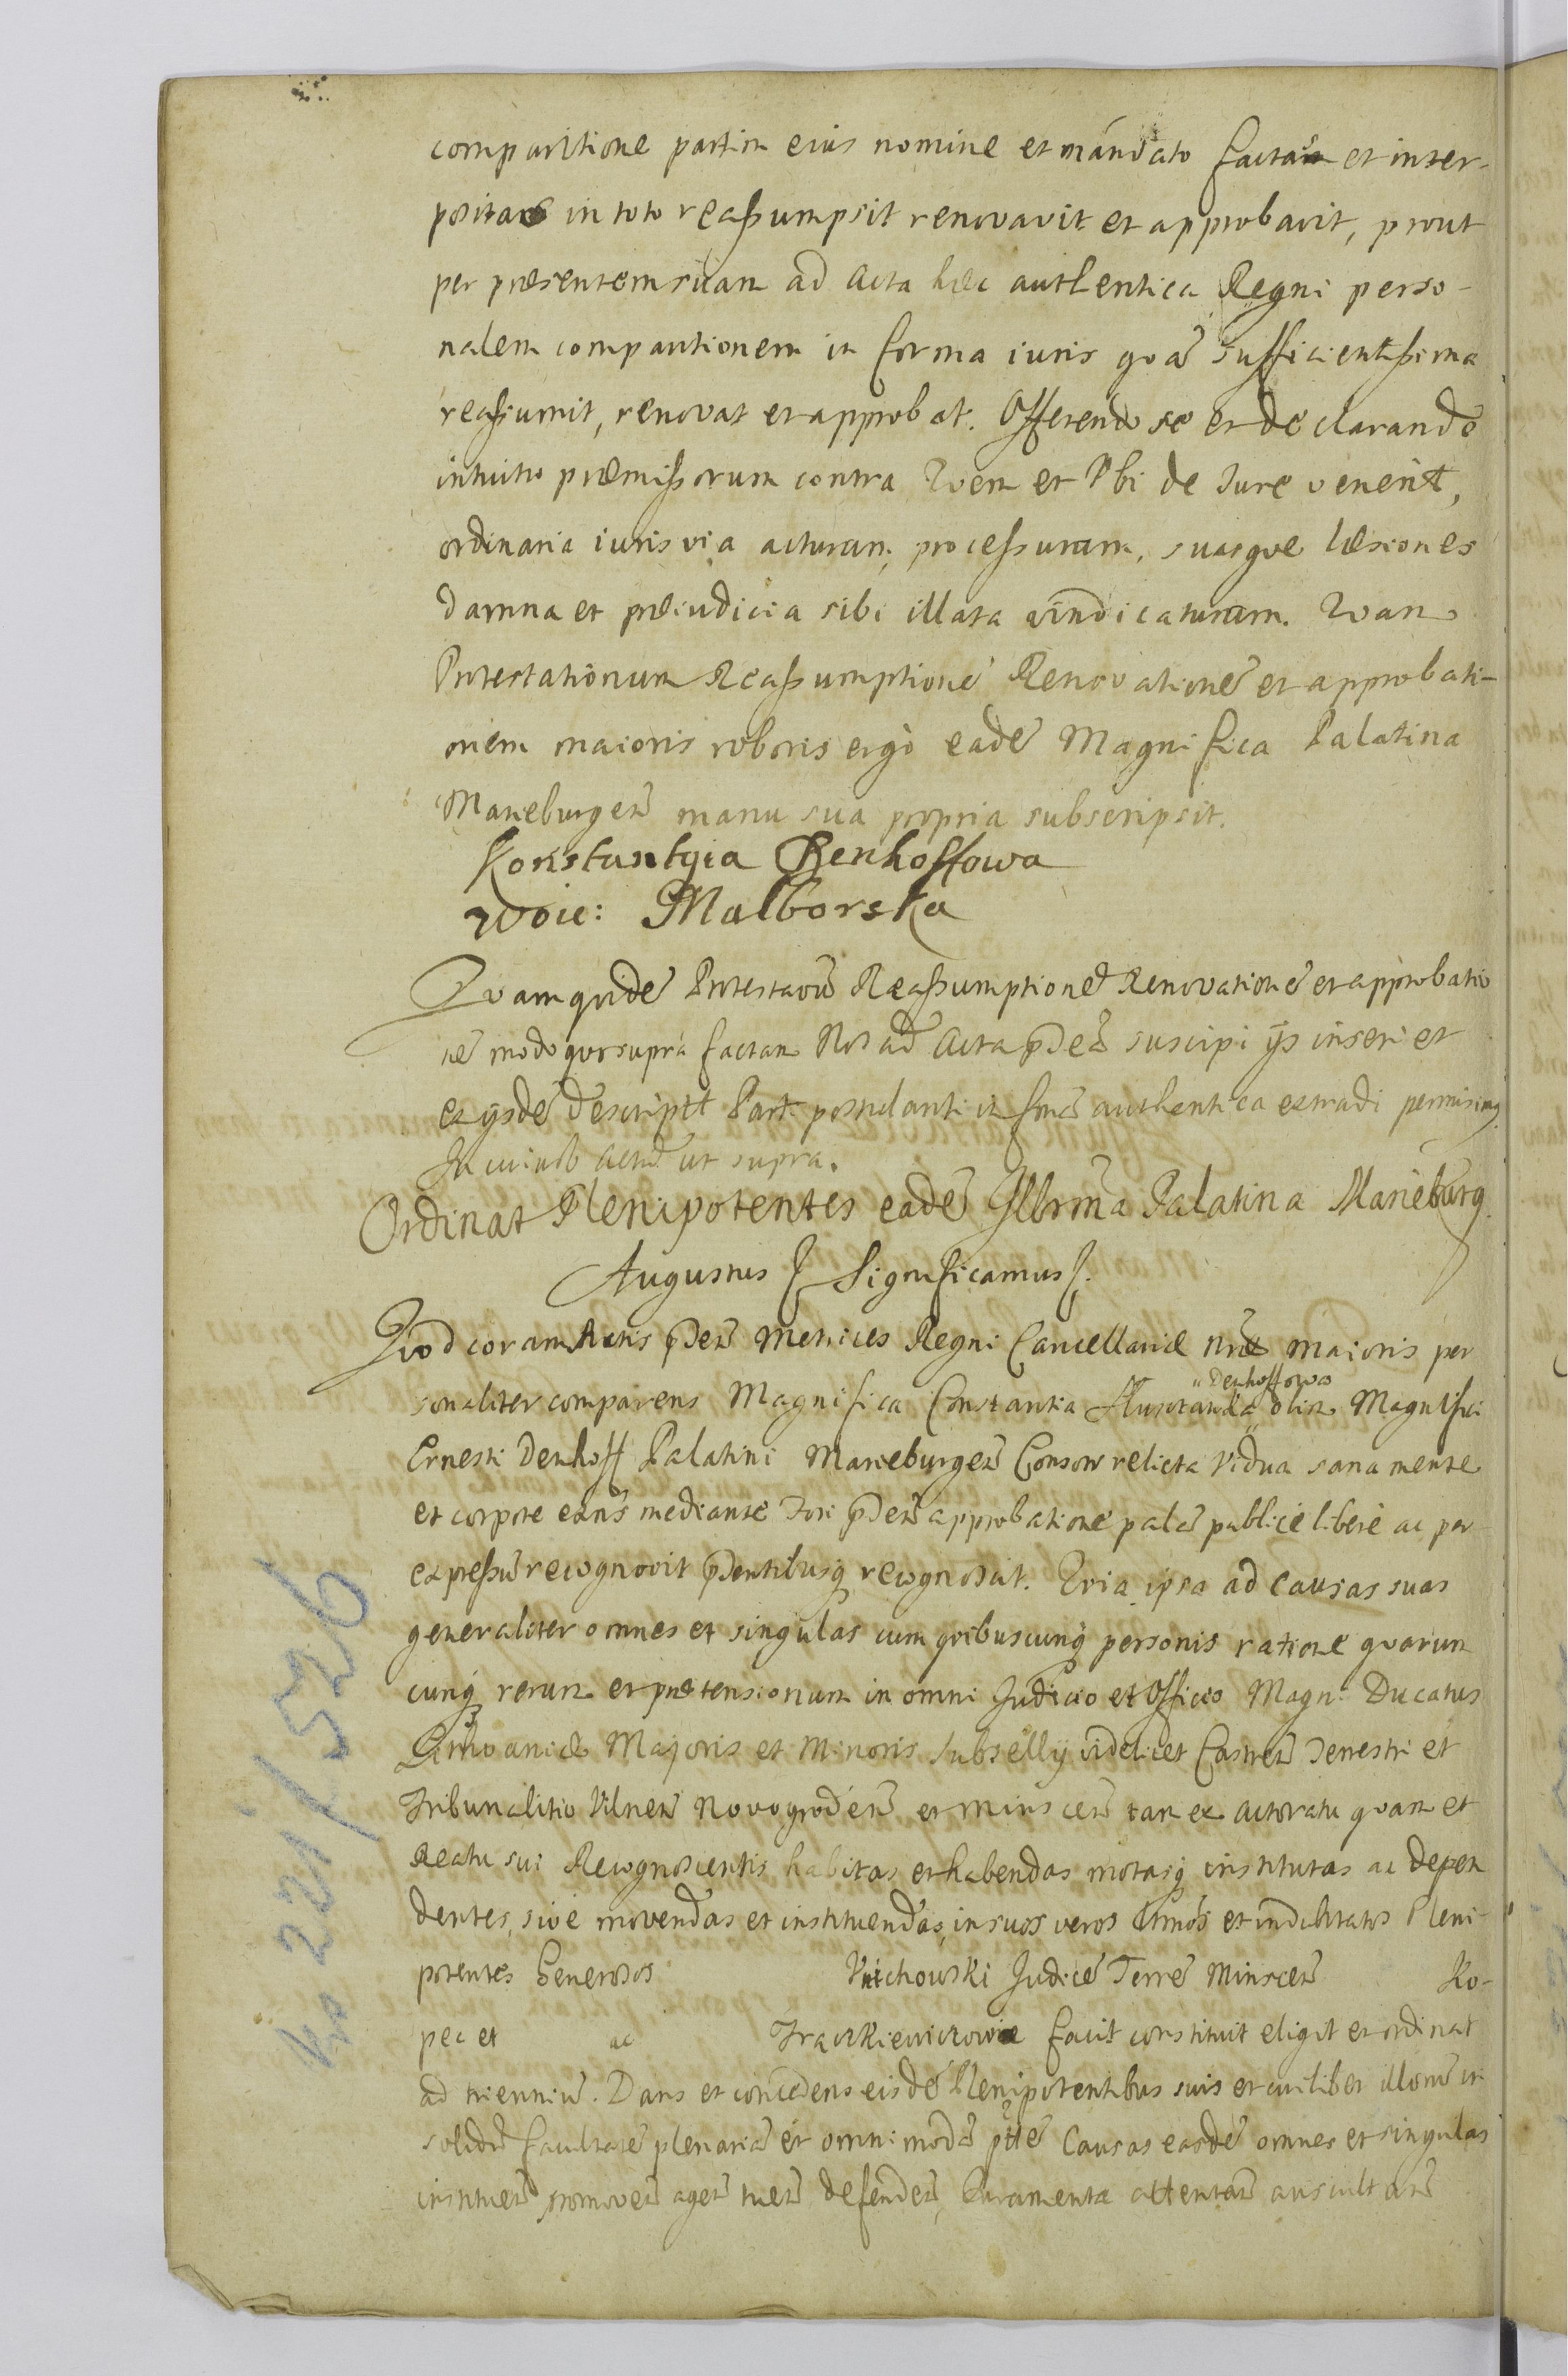 comparitione partim eius nomine et mandato factam et inter-
positam in toto reassumpsit renovavit et approbavit, prout
per præsentem suam ad Acta hæc authentica Regni perso-
nalem comparitionem in forma iuris qua sufficientissima
reassumit, renovat et approbat. Offerendo se et declarando
intuitu præmissorum contra Quem et Ubi de Jure venerit,
ordinaria iuris via acturam, processuram, suasque læsiones
damna et præiudicia sibi illata vindicaturam. Quam
Protestationum Reassumptionē Renovationē et approbati-
onem maioris roboris ergò eadē Magnifica Palatina
Marieburgeñ manu sua propria subscripsit.
Konstantyia Denhoffowa
Woie: Malborska
Quamquidē Protestaōñ Reassumptionē Renovationē et approbatio
nē modo quo supra factam Nos ad Acta p̄deñ suscipi ijs inseri et
ex ijsdē descriptt Parti postulanti in formā authentica extradi permisimus
In cuius Actū ut supra.
Ordinat Plenipotentes eadē Illrma Palatina Marieburg.
Augustus Significamus
Quod coram Actis p̄deñ Metrices Regni Cancellariæ nræ maioris per
sonaliter comparens Magnifica Constantia " Denhoffowa " olim Magnifici
Ernesti Denhoff Palatini Marieburgeñ Consors relicta Vidua sana mente
et corpore exñs mediante Fori p̄deñ approbatione palā publicè liberè ac per
expressū recognovit p̄sentibusq recognoscit. Quia ipsa ad causas suas
generaliter omnes et singulas cum quibuscunq personis ratione quarum
cunq rerum et prætensionum in omni Judicio et Officio Magni Ducatus
Lithvaniæ Majoris et Minoris subsellij videlicet Castreñ Terrestri et
Tribunalitio Vilneñ Novogrodeñ et Minsceñ tam ex actoratu quam et
Reatu sui Recognoscentis habitas et habendas motasq institutas ac depen
dentes, sive movendas et instituendas, in suos veros Ltmos et indubitatos Pleni-
potentes Generosos Judicē Terrē Minsceñ Ko-
pec et ac facit constituit eligit et ordinat
ad trienniū. Dans et concedens eisdē Plenipotentibus suis et cuilibet illorū in
solidū facultatē plenariā et omnimodā ptē Causas easdē omnes et singulas
instituere promovere agere tueri defendere, Juramenta attentare auscultare